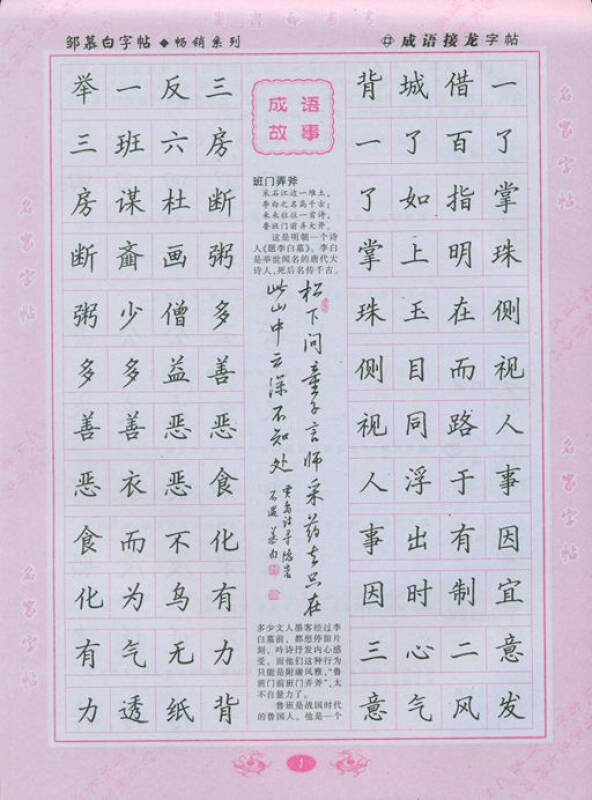 邹慕白字帖◆畅销系列
成语接龙字帖
举一反三
三班六房
房谋杜断
断齑画粥
粥少僧多
多多益善
善善恶恶
恶衣恶食
食而不化
化为乌有
有气无力
力透纸背
成语
故事
班门弄斧
采石江边一堆土，
李白之名高千古；
来来往往一首诗，
鲁班门前弄大斧。
这是明朝一个诗
人《题李白墓》。李白
是举世闻名的唐代大
诗人，死后名传千古。
松下问童子言师采药去只在
此山中云深不知处
贾岛诗寻隐者
不遇 慕白
多少文人墨客经过李
白墓前，都想停留片
刻，吟诗抒发内心感
受。而他们这种行为
只能是附庸风雅，“鲁
班门前班门弄斧”，太
不自量力了。
鲁班是战国时代
的鲁国人。他是一个
背城借一
一了百了
了如指掌
掌上明珠
珠玉在侧
侧目而视
视同路人
人浮于事
事出有因
因时制宜
三心二意
意气风发
名家字帖
名家字帖
名家字帖
名家字帖
1